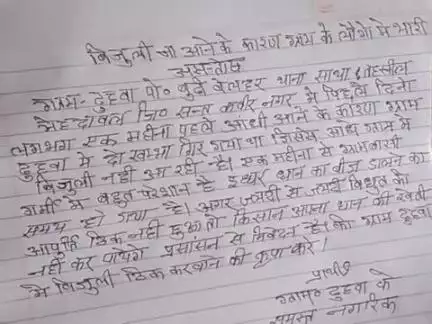 बिजुली ना आने के कारण ग्राम के लोगो मे भारी
असन्तोष
ग्राम- दुहवा पो० बुदी बेलहर थाना साथा तहसील
मेहदावल जि० सन्त कबीर नगर मे पिछले दिनो
लगभग एक महीना पहले आंधी आने के कारण ग्राम
दुहवा मे दो खम्भा गिर गया था जिससे आधे ग्राम मे
बिजुली नही आ रही है। एक महीना से ग्रामवासी
गर्मी मे बहुत परेशान है इधर धान का बीज डालने का
समय हो गया है। अगर जल्दी से जल्दी विधुत की
आपुर्ति ठिक नही हुआ तो किसान अपना धान की खेती
नही कर पायेंगे प्रसासन से निवेदन है। की ग्राम दुहवा
मे बिजुली ठिक करवाने की कृपा करे।
प्रार्थी
ग्राम० दुहवा के
समस्त नागरिक